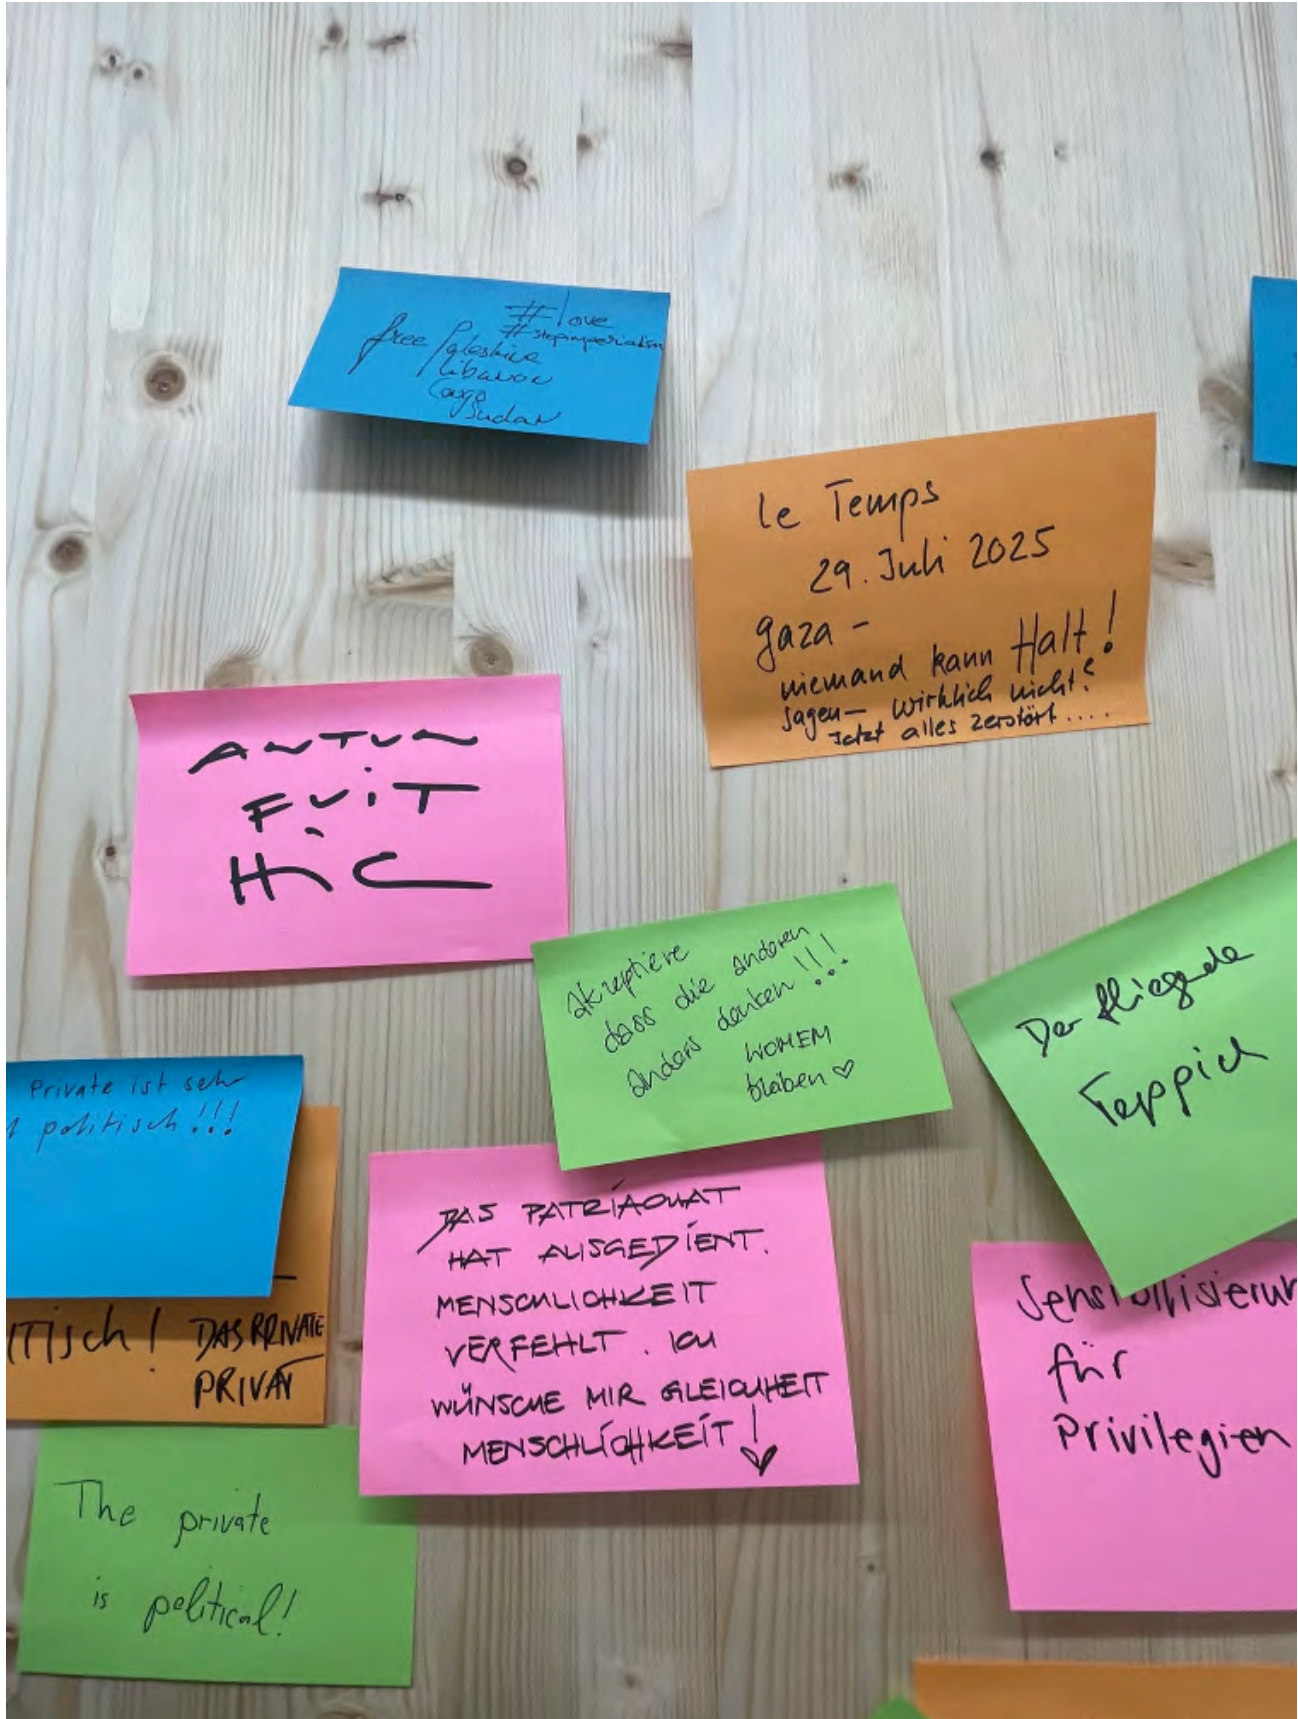 #love
#stopimperialism
free Palestine
Libanon
Congo
Sudan
le Temps
29. Juli 2025
gaza -
niemand kann Halt!
sagen - wirklich nicht?
Jetzt alles zerstört....
ANTUN
FUIT
HIC
Akzeptiere
dass die anderen
anders denken!!!
WOMEM
bleiben ♡
Der fliegende
Teppich
Private ist sehr
politisch!!!
ITisch! DAS PRIVATE
PRIVAT
DAS PATRIACHAT
HAT AUSGEDIENT.
MENSCHLICHKEIT
VERFEHLT. ICH
WÜNSCHE MIR GLEICHHEIT
MENSCHLICHKEIT!
♡
Sensibilisierun
für
Privilegien
The private
is political!